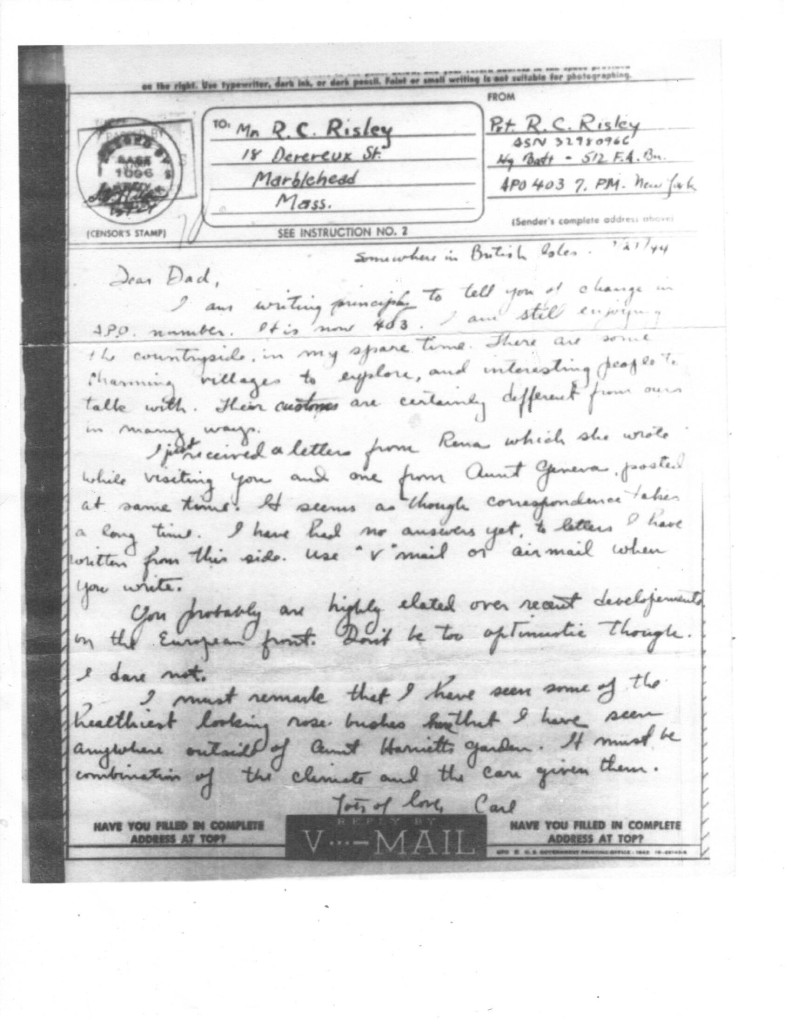 on the right. Use typewriter, dark ink, or dark pencil. Faint or small writing is not suitable for photographing.
FROM
TO: Mr R. C. Risley
18 Devereux St.
Marblehead
Mass.
Pvt. R. C. Risley
ASN 32980966
Hq Batt - 512 F.A. Bn.
APO 403 P.M. New York
PASSED BY
BASE
1096
(CENSOR'S STAMP)
SEE INSTRUCTION NO. 2
(Sender's complete address above)
Somewhere in British Isles. /21/44
Dear Dad,
I am writing to tell you of change in
A.P.O. number. It is now 403. I am still enjoying
the countryside, in my spare time. There are some
charming villages to explore, and interesting people to
talk with. Their customs are certainly different from ours
in many ways.
I just received a letters from Rena which she wrote
while visiting you and one from Aunt Geneva, posted
at same time. It seems as though correspondence takes
a long time. I have had no answers yet, to letters I have
written from this side. Use "V" mail or air mail when
you write.
You probably are highly elated over recent developements
on the European front. Don't be too optimistic though.
I dare not.
I must remark that I have seen some of the
healthiest looking rose bushes that I have seen
anywhere outside of Aunt Harrietts garden. It must be
combination of the climate and the care given them.
Lots of love, Carl
HAVE YOU FILLED IN COMPLETE
ADDRESS AT TOP?
REPLY BY
V···—MAIL
HAVE YOU FILLED IN COMPLETE
ADDRESS AT TOP?
U. S. GOVERNMENT PRINTING OFFICE : 1943